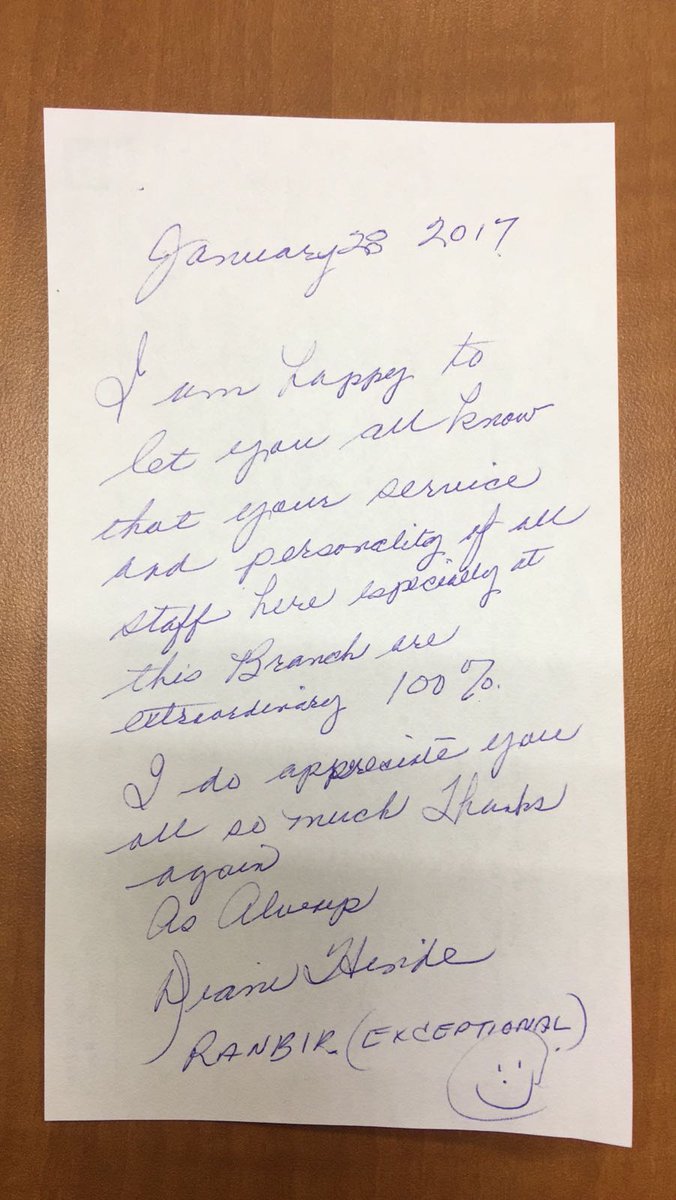 January 28 2017
I am happy to
let you all know
that your service
and personality of all
staff here especially at
this Branch are
extraordinary 100%.
I do appreciate you
all so much Thanks
again
As Always
Diane
RANBIR. (EXCEPTIONAL.)